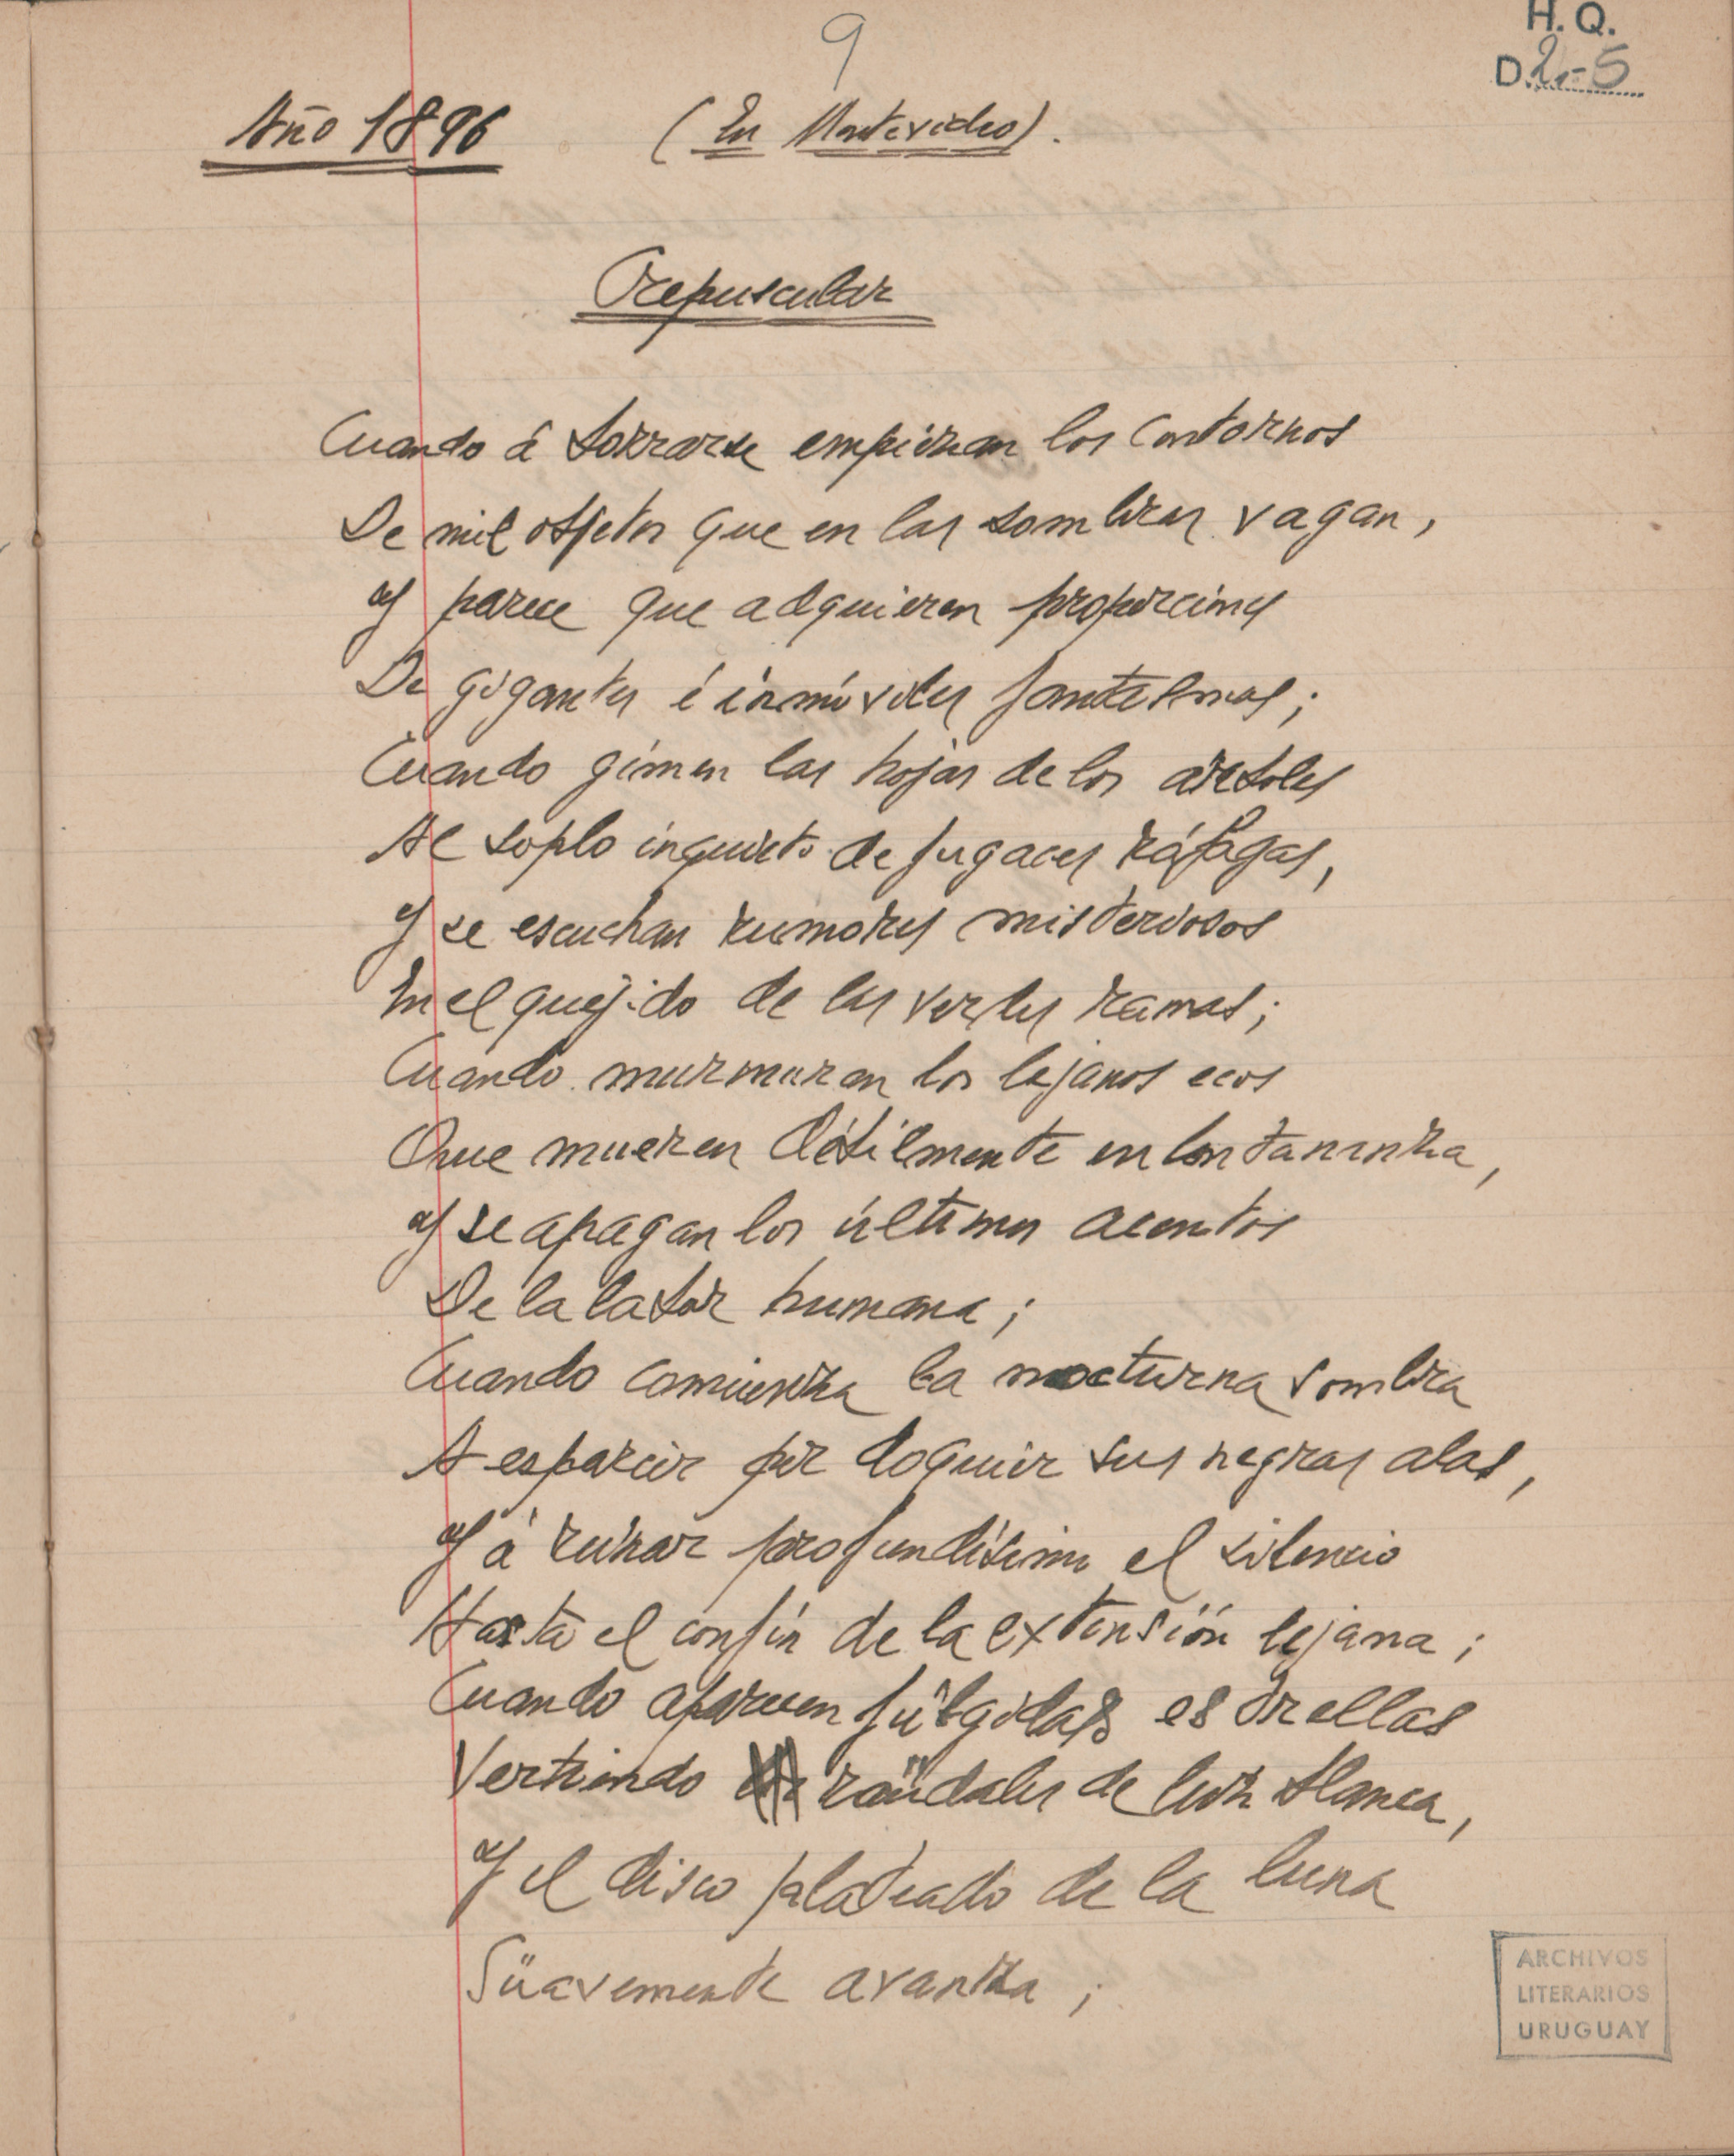 9
H. Q.
D. 2-5
Año 1896 (En Montevideo).
Crepuscular
Cuando á borrarse empiezan los contornos
De mil objetos que en las sombras vagan,
Y parece que adquieren proporciones
De gigantes é inmóviles fantasmas;
Cuando gimen las hojas de los arboles
Al soplo inquieto de fugaces ráfagas,
Y se escuchan rumores misteriosos
En el quejido de las verdes ramas;
Cuando murmuran los lejanos ecos
Que mueren débilmente en lontananza,
Y se apagan los últimos acentos
De la labor humana;
Cuando comienza la nocturna sombra
A esparcir por doquier sus negras alas,
Y á reinar profundísimo el silencio
Hasta el confín de la extensión lejana;
Cuando aparecen fúlgidas estrellas
Vertiendo raüdales de luz blanca,
Y el disco plateado de la luna
Süavemente avanza;
ARCHIVOS
LITERARIOS
URUGUAY